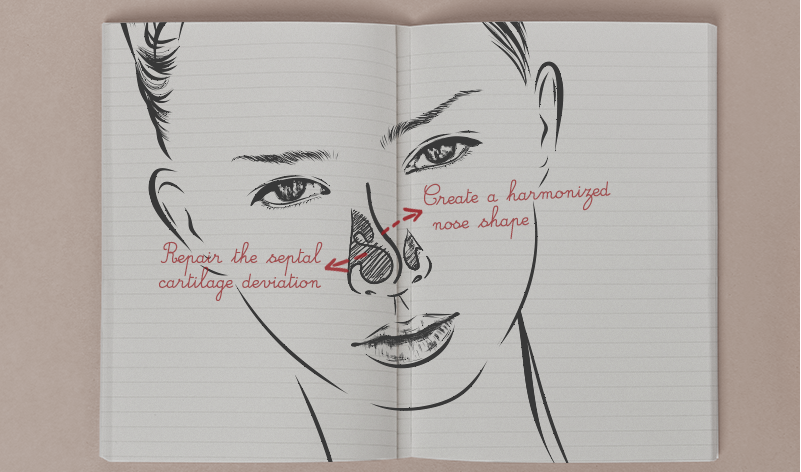 Create a harmonized
nose shape
Repair the septal
cartilage deviation